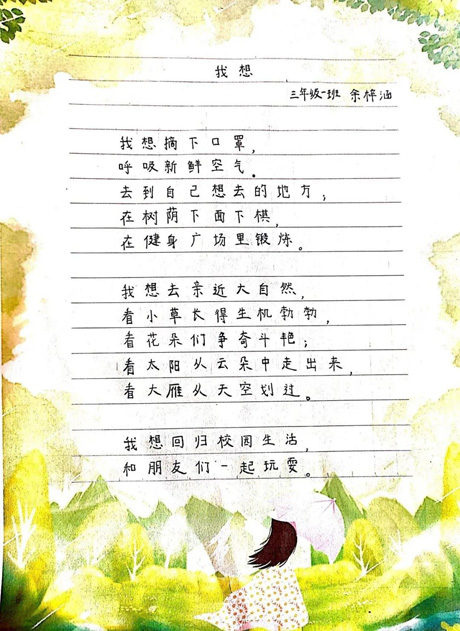 我想
三年级一班 余梓涵
我想摘下口罩，
呼吸新鲜空气。
去到自己想去的地方；
在树荫下面下棋，
在健身广场里锻炼。
我想去亲近大自然，
看小草长得生机勃勃，
看花朵们争奇斗艳；
看太阳从云朵中走出来，
看大雁从天空划过。
我想回归校园生活，
和朋友们一起玩耍。